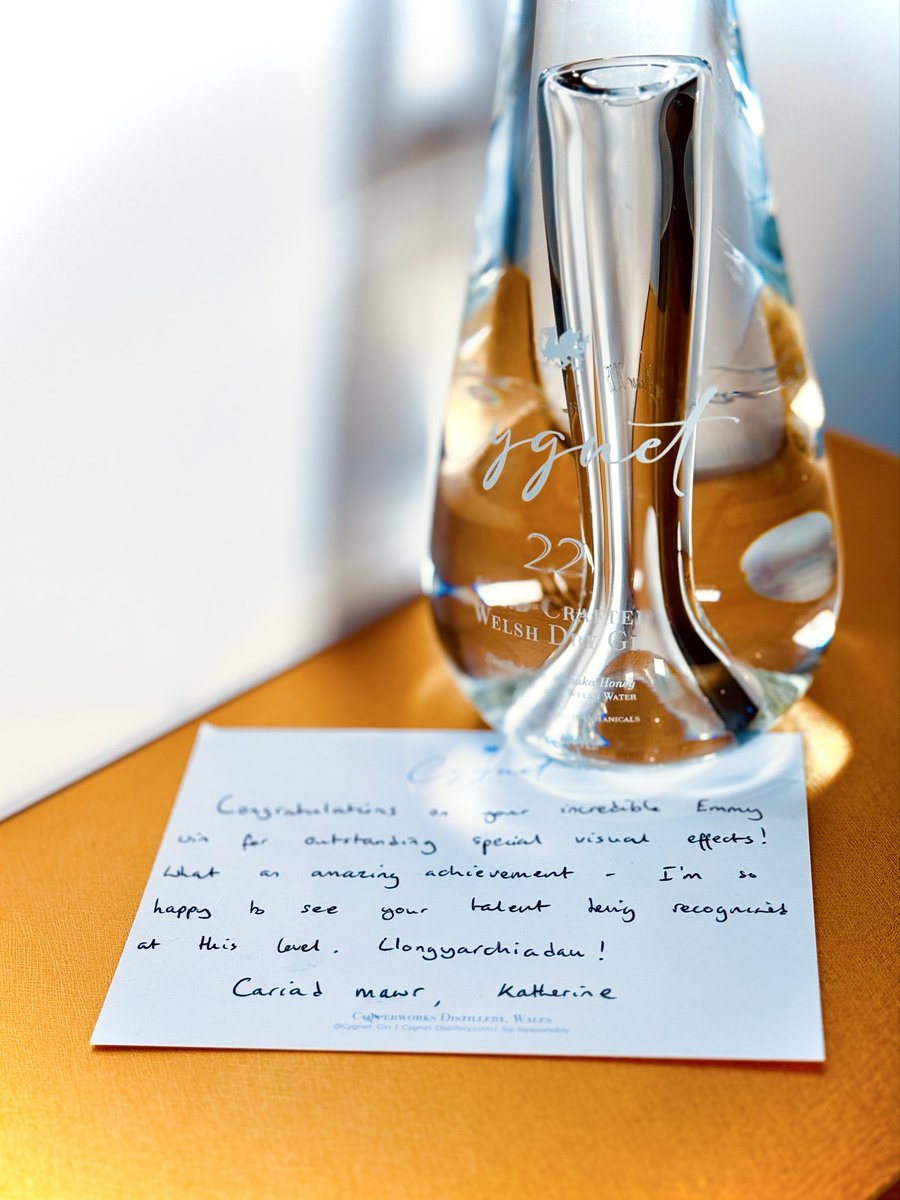 ygnet
22
Crafted
Welsh Dry Gi
uka Honey
Welsh Water
tanicals
Cygnet
Congratulations on your incredible Emmy
win for outstanding special visual effects!
What an amazing achievement - I'm so
happy to see your talent being recognised
at this level. Llongyarchiadau!
Cariad mawr, Katherine
Copperworks Distillery, Wales
@Cygnet_Gin | Cygnet Distillery.com | Sip Responsibly